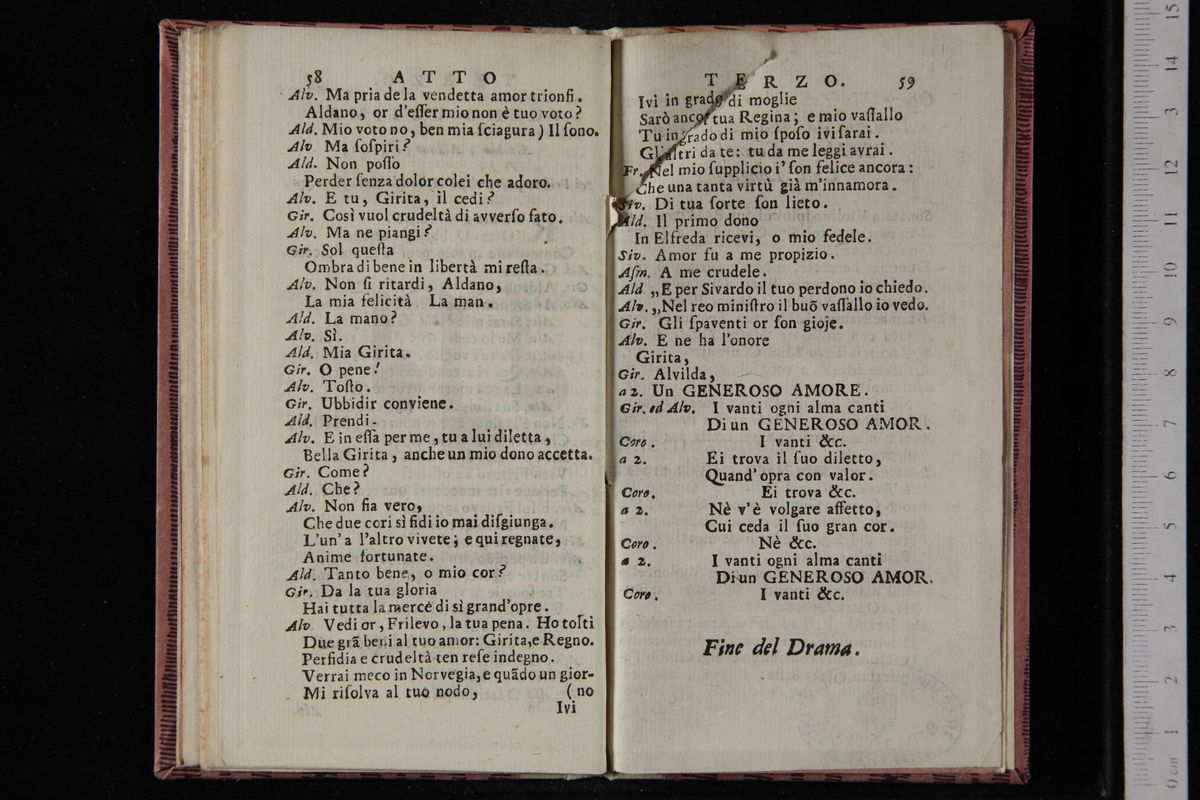 58 ATTO
Alv. Ma pria de la vendetta amor trionfi.
Aldano, or d'eſſer mio non è tuo voto?
Ald. Mio voto no, ben mia ſciagura) Il ſono.
Alv Ma ſoſpiri?
Ald. Non poſſo
Perder ſenza dolor colei che adoro.
Alv. E tu, Girita, il cedi?
Gir. Così vuol crudeltà di avverſo fato.
Alv. Ma ne piangi?
Gir. Sol queſta
Ombra di bene in libertà mi reſta.
Alv. Non ſi ritardi, Aldano,
La mia felicità La man.
Ald. La mano?
Alv. Sì.
Ald. Mia Girita.
Gir. O pene!
Alv. Toſto.
Gir. Ubbidir conviene.
Ald. Prendi-
Alv. E in eſſa per me, tu a lui diletta,
Bella Girita, anche un mio dono accetta.
Gir. Come?
Ald. Che?
Alv. Non fia vero,
Che due cori sì fidi io mai diſgiunga.
L'un' a l'altro vivete; e qui regnate,
Anime fortunate.
Ald. Tanto bene, o mio cor?
Gir. Da la tua gloria
Hai tutta la mercè di sì grand'opre.
Alv Vedi or, Frilevo, la tua pena. Ho tolti
Due grã beni al tuo amor: Girita, e Regno.
Perfidia e crudeltà ten reſe indegno.
Verrai meco in Norvegia, e quãdo un gior-
Mi riſolva al tuo nodo, (no
Ivi
TERZO. 59
Ivi in grado di moglie
Sarò ancor tua Regina; e mio vaſſallo
Tu in grado di mio ſpoſo ivi ſarai.
Gl'altri da te: tu da me leggi avrai.
Fr. Nel mio ſupplicio i' ſon felice ancora:
Che una tanta virtù già m'innamora.
Siv. Di tua ſorte ſon lieto.
Ald. Il primo dono
In Elfreda ricevi, o mio fedele.
Siv. Amor fu a me propizio.
Aſm. A me crudele.
Ald „E per Sivardo il tuo perdono io chiedo.
Alv. „Nel reo miniſtro il buõ vaſſallo io vedo.
Gir. Gli ſpaventi or ſon gioje.
Alv. E ne ha l'onore
Girita,
Gir. Alvilda,
a 2. Un GENEROSO AMORE.
Gir. ed Alv. I vanti ogni alma canti
Di un GENEROSO AMOR.
Coro. I vanti &c.
a 2. Ei trova il ſuo diletto,
Quand' opra con valor.
Coro. Ei trova &c.
a 2. Nè v'è volgare affetto,
Cui ceda il ſuo gran cor.
Coro. Nè &c.
a 2. I vanti ogni alma canti
Di un GENEROSO AMOR.
Coro. I vanti &c.
Fine del Drama.
0 cm 1 2 3 4 5 6 7 8 9 10 11 12 13 14 15